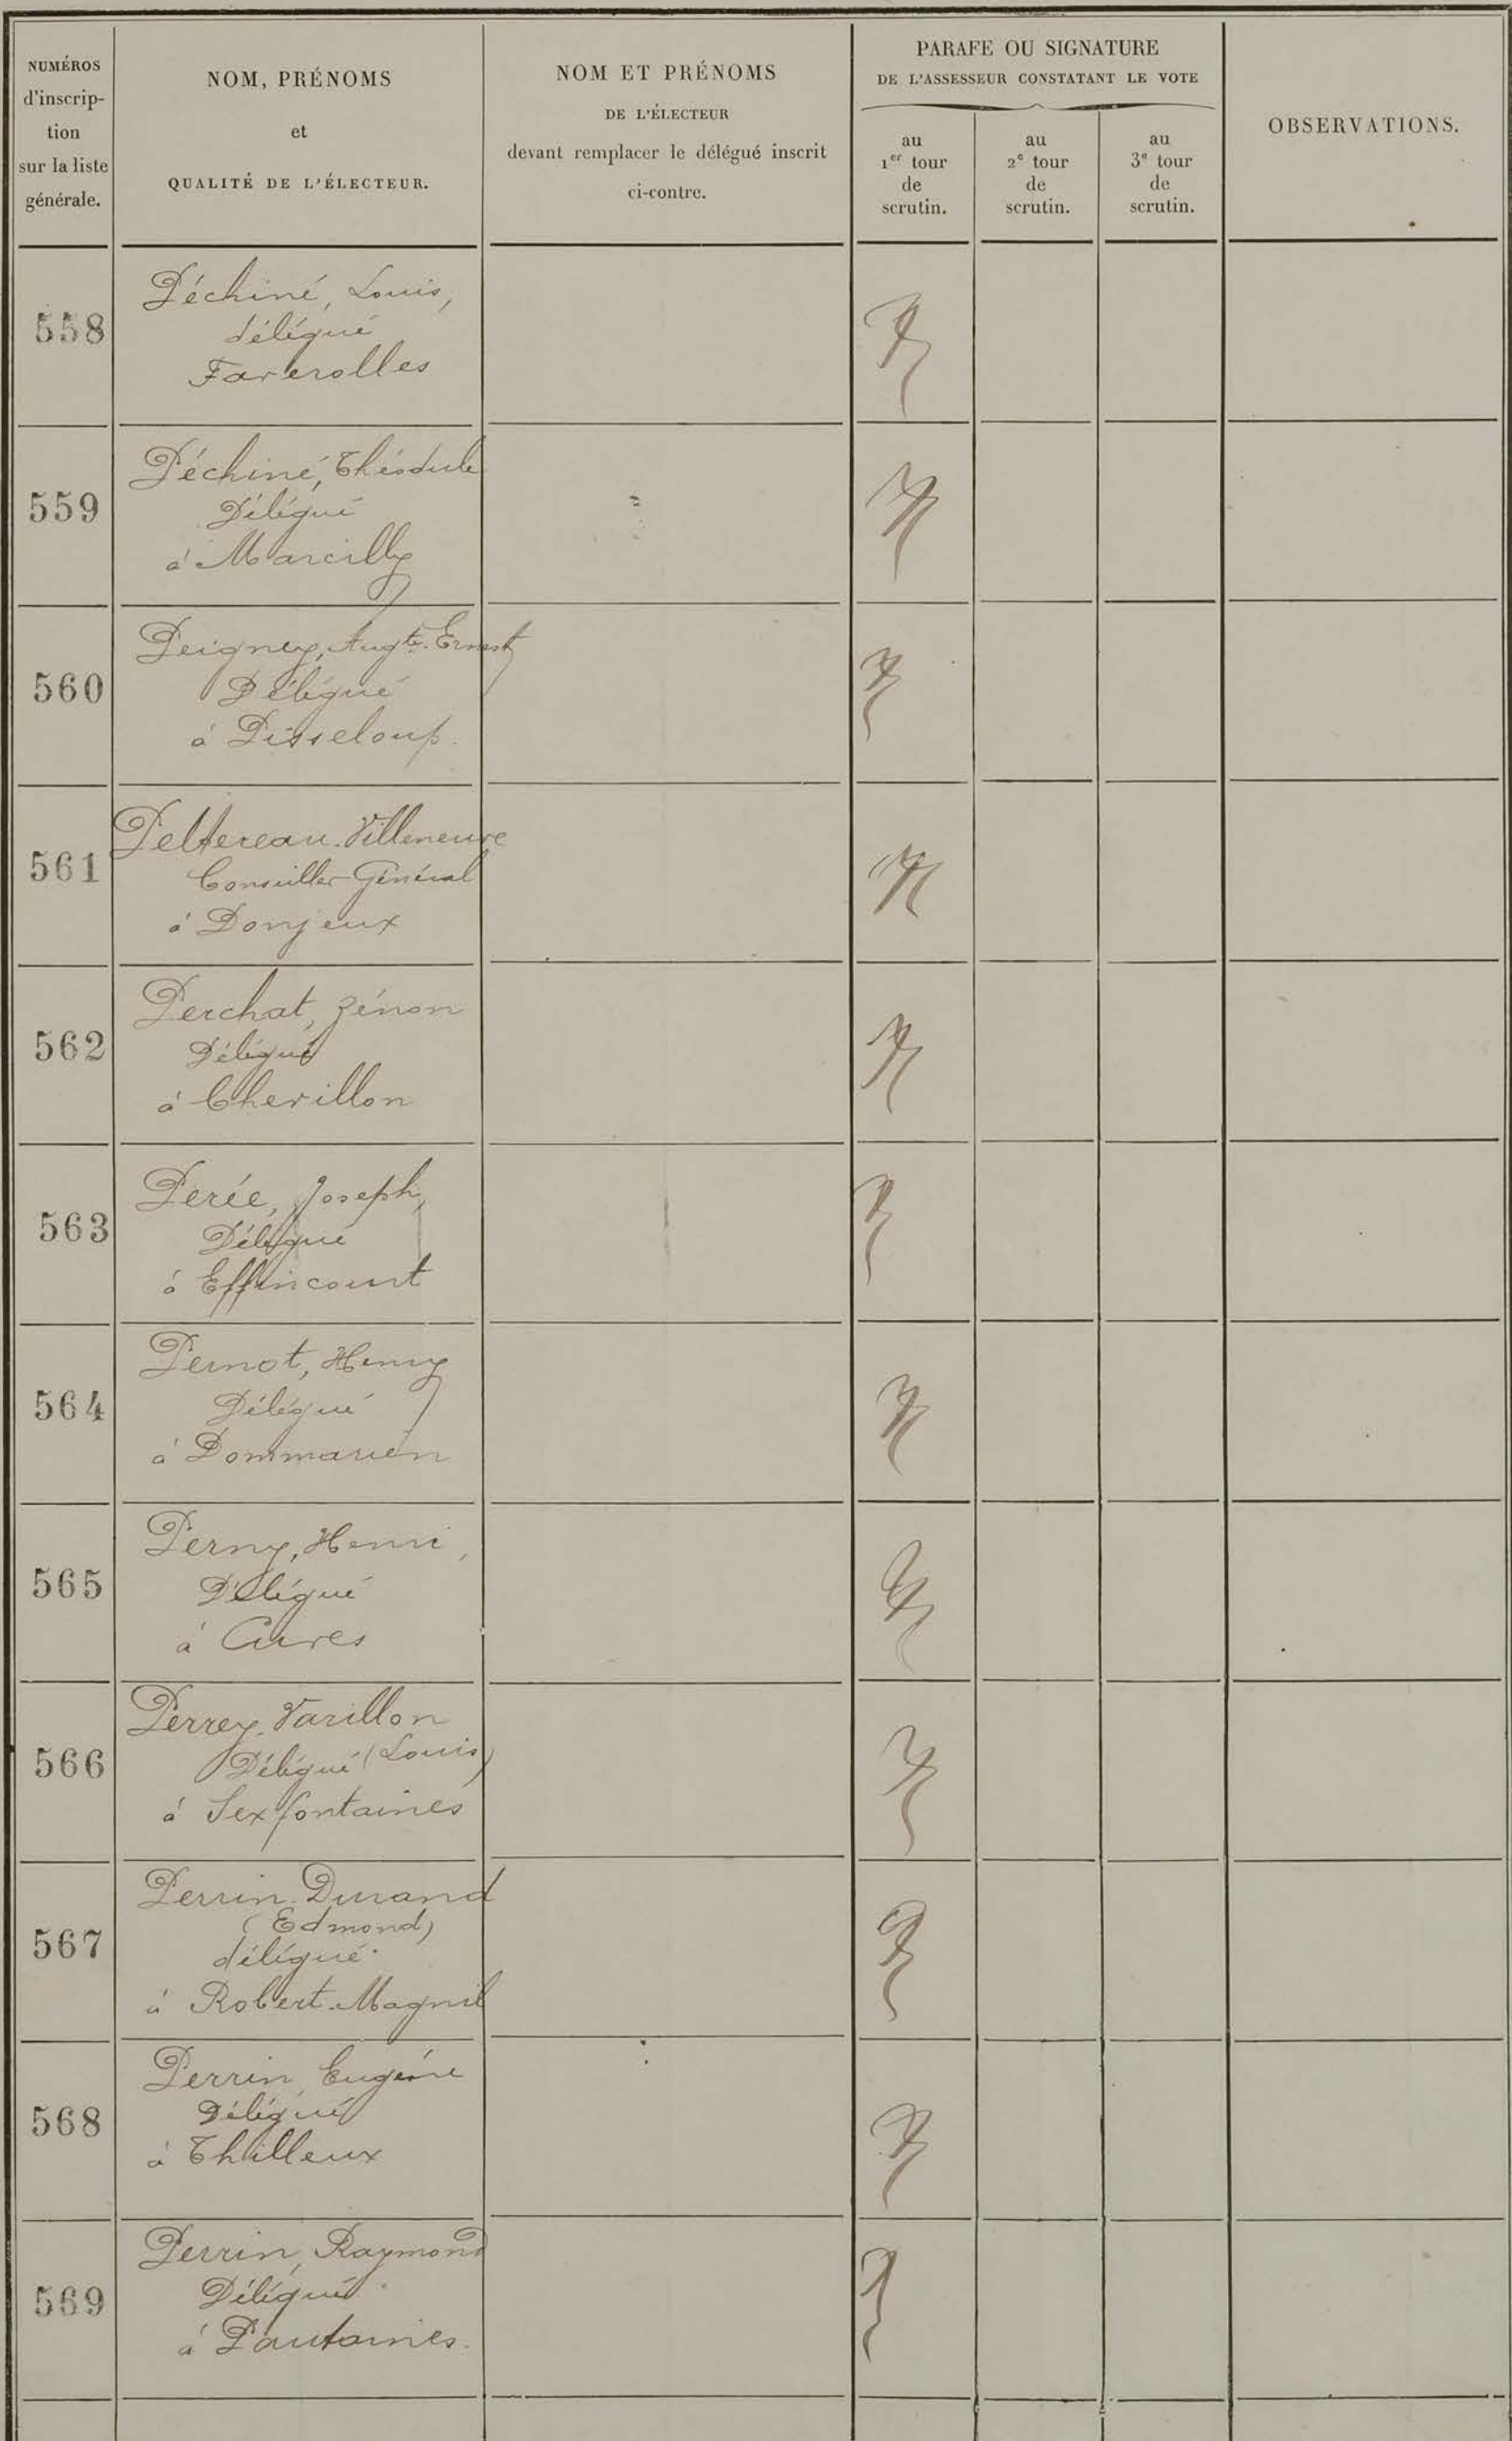 NUMÉROS
d'inscrip-
tion
sur la liste
générale.
NOM, PRÉNOMS
et
QUALITÉ DE L'ÉLECTEUR.
NOM ET PRÉNOMS
DE L'ÉLECTEUR
devant remplacer le délégué inscrit
ci-contre.
PARAFE OU SIGNATURE
DE L'ASSESSEUR CONSTATANT LE VOTE
au
1er tour
de
scrutin.
au
2e tour
de
scrutin.
au
3e tour
de
scrutin.
OBSERVATIONS.
558
Péchiné, Louis,
délégué
Faverolles
559
Péchiné, Théodule
Délégué
à Marcilly
560
Peigney, Augte Ernest
Délégué
à Pisseloup.
561
Peltereau-Villeneuve
Conseiller Général
à Donjeux
562
Perchat, Zénon
Délégué
à Chevillon
563
Perée, Joseph,
Délégué
à Effincourt
564
Pernot, Henry
Délégué
à Dommarien
565
Perny, Henri,
Délégué
à Cuves
566
Perrey-Varillon
Délégué (Louis)
à Sexfontaines
567
Perrin-Durand
(Edmond)
délégué
à Robert-Magnil
568
Perrin, Eugène
Délégué
à Thilleux
569
Perrin, Raymond
Délégué
à Pautaines.